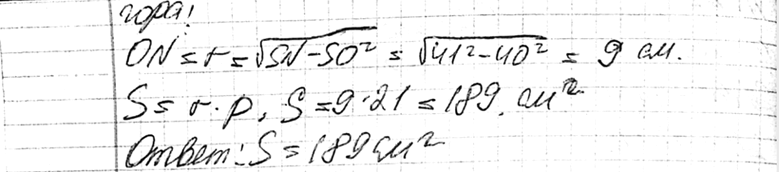 гора!
ON = r = √SN - SO² = √41² - 40² = 9 см.
S = r · p, S = 9 · 21 = 189 см²
Ответ: S = 189 см²